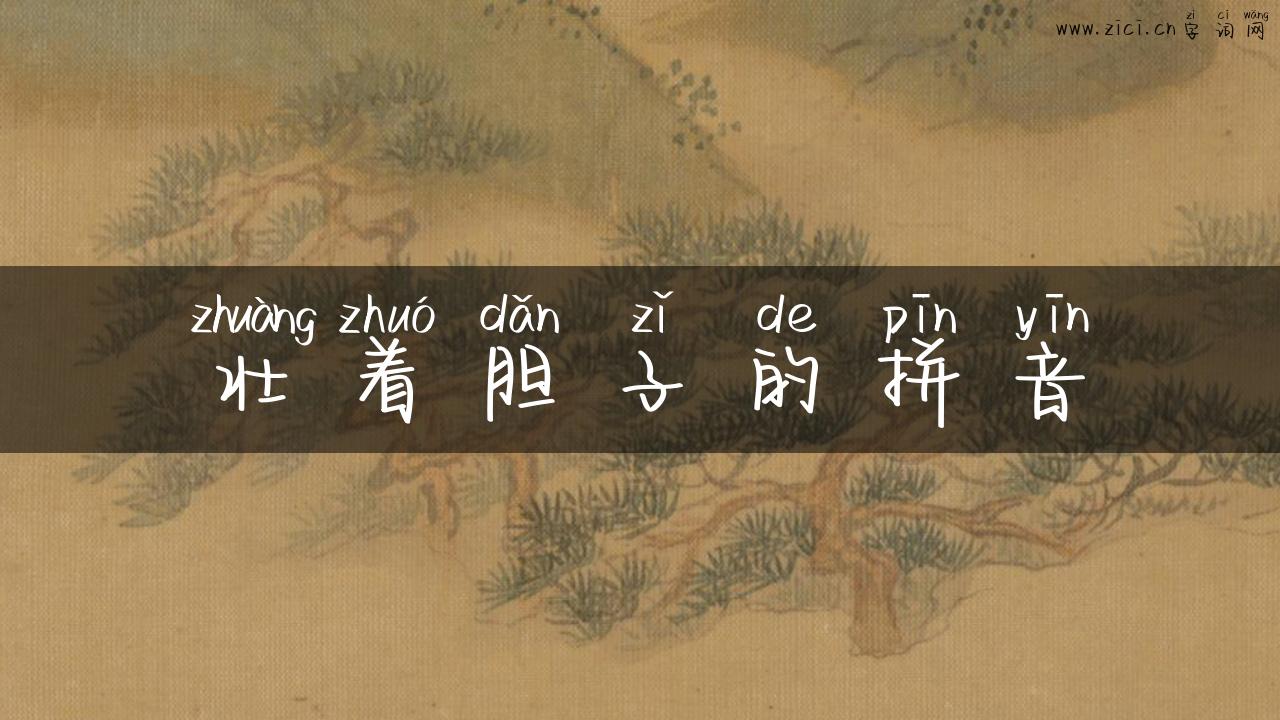 zì cí wǎng
www.zici.cn 字词网
zhuàng zhuó dǎn zǐ de pīn yīn
壮着胆子的拼音